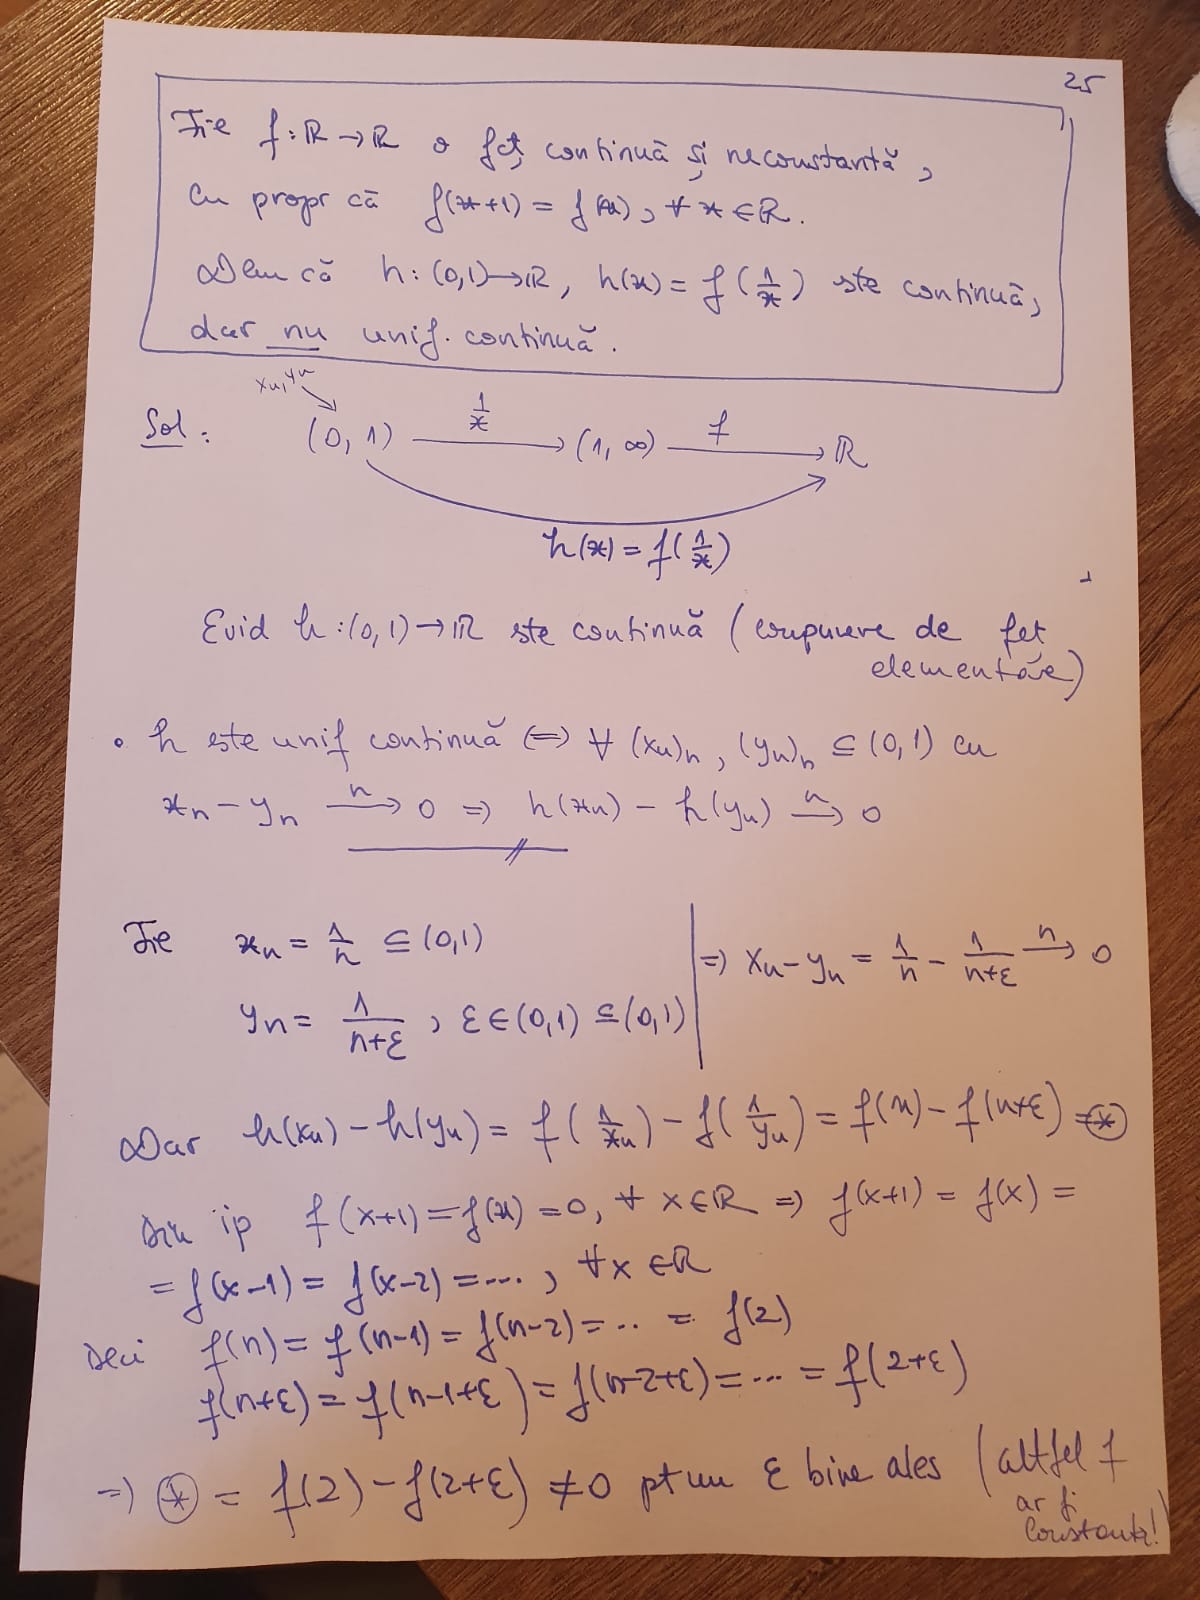 25
Fie f:ℝ→ℝ o fct continuă și neconstantă,
cu propr că f(x+1) = f(x), ∀ x ∈ ℝ.
Dem că h:(0,1)→ℝ, h(x) = f(1/x) este continuă,
dar nu unif. continuă.
xn, yn
Sol: (0,1) 1/x → (1,∞) f → ℝ
h(x) = f(1/x)
Evid h:(0,1)→ℝ este continuă (compunere de fct
elementare)
• h este unif continuă ⇔ ∀ (xn)n, (yn)n ⊆ (0,1) cu
xn - yn n→ 0 ⇒ h(xn) - h(yn) n→ 0
Fie xn = 1/n ⊆ (0,1)
yn = 1/(n+ε), ε∈(0,1) ⊆ (0,1) | ⇒ xn - yn = 1/n - 1/(n+ε) n→ 0
Dar h(xn) - h(yn) = f(1/xn) - f(1/yn) = f(n) - f(n+ε) = (*)
Din ip f(x+1) = f(x) = 0, ∀ x∈ℝ ⇒ f(x+1) = f(x) =
= f(x-1) = f(x-2) = ..., ∀x ∈ℝ
Deci f(n) = f(n-1) = f(n-2) = .. = f(2)
f(n+ε) = f(n-1+ε) = f(n-2+ε) = ... = f(2+ε)
⇒ (*) = f(2) - f(2+ε) ≠ 0 pt un ε bine ales (altfel f
ar fi
constantă!)